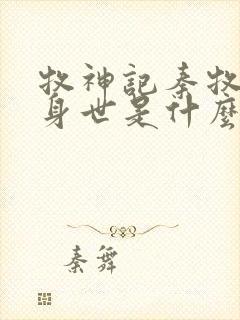 牧神記秦牧
身世是什麼
秦舞